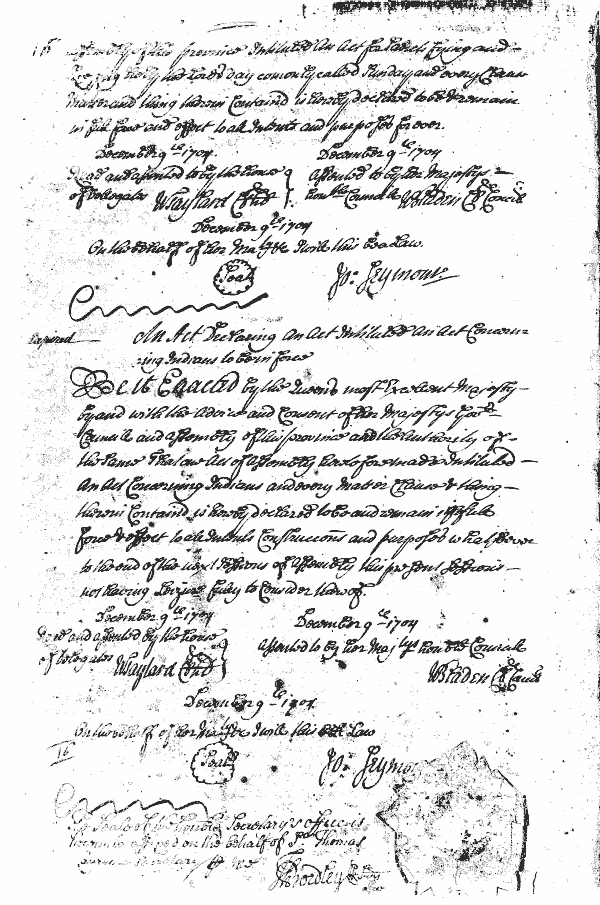 Assembly of this province Intituled An Act for Sanctifying and
keeping holy the Lords day comonly called Sunday and every Clause
Matter and thing therein Containd is hereby declared to be & remain
in full force and effect to all Intents and purposes for ever.
December 9th 1704. December 9th 1704
Read and assented to by the house Assented to by her Majestys
of Delegates W Taylard Clk hd honble Councill W Bladen Cl Concil
December 9th 1704
On the behalf of her Maty &c I will this be a Law.
Seal Jo: Seymour
Expired An Act Declaring An Act Intituled An Act Concern
ing Indians to be in force
Be it Enacted by the Queens most Excellent Majesty
by and with the Advice and Consent of her Majestys
Councill and assembly of this province and the Authority of
the same That one Act of Assembly heretofore made & Intituled
An Act Concerning Indians and every Matter Clause & thing
therein Containd is hereby declared to be and remain in full
force & effect to all Intents Construccons and purposes whatsoever
to the end of the next Sessions of Assembly this present Sessions
not having Leizure fully to Consider thereof.
December 9th 1704 December 9th 1704
Read and assented by the house Assented to by her Majtys honble Councill
of Delegates W Taylard Clk hd W Bladen Cl Concil
December 9th 1704.
On the behalf of her Maty &c I will this be a Law
16
Seal Jo: Seymo
The Seale of the honble Secretary's office is
hereunto affixed on the behalf of Sr Thomas
Secretary by me
Bordley